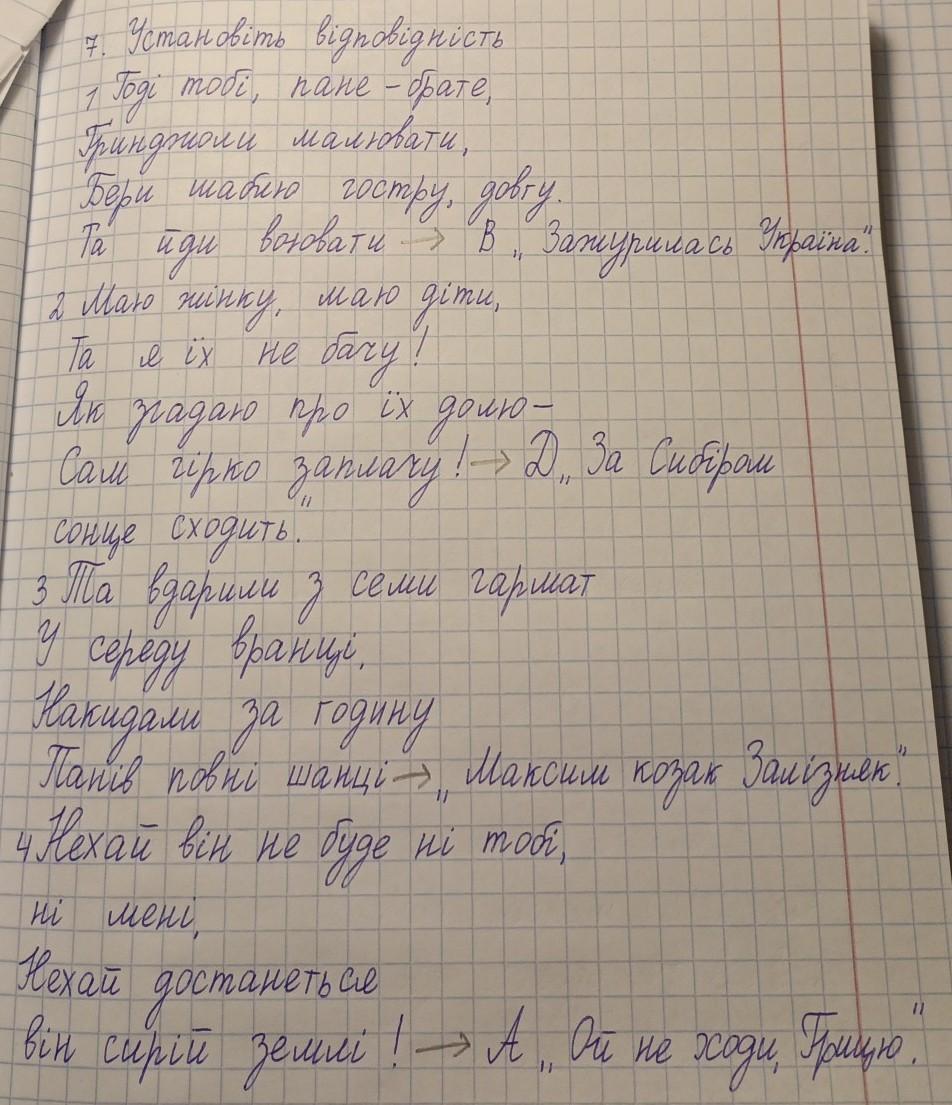 7. Установіть відповідність
1 Годі тобі, пане-брате,
Ґринджоли малювати,
Бери шаблю гостру, довгу.
Та йди воювати → В „Зажурилась Україна".
2 Маю жінку, маю діти,
Та я їх не бачу!
Як згадаю про їх долю –
Сам гірко заплачу! → Д „За Сибіром
сонце сходить."
3 Та вдарили з семи гармат
У середу вранці,
Накидали за годину
Панів повні шанці → „Максим козак Залізняк".
4 Нехай він не буде ні тобі,
ні мені,
Нехай достанеться
він сирій землі! → А „Ой не ходи, Грицю".